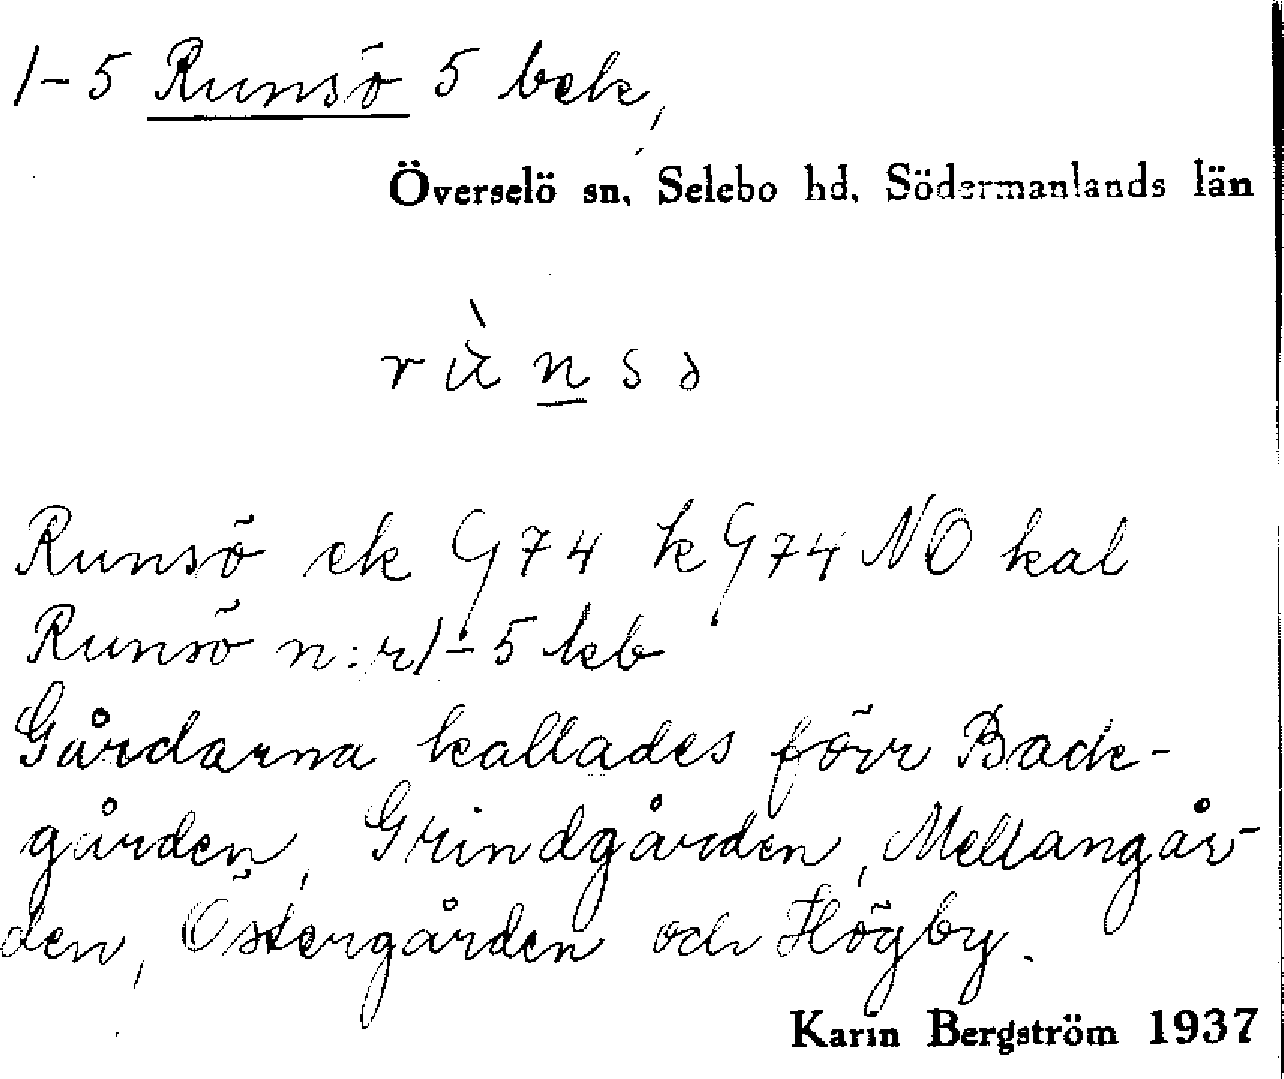 1-5 Runsö 5 bek,
Överselö sn, Selebo hd, Södermanlands län
rù̀n̲sə
Runsö ek G74 k G74 NO kal
Runsö n:r 1-5 kb
Gårdarna kallades förr Back-
gården, Grindgården, Mellangår-
den, Östergården och Högby.
Karin Bergström 1937